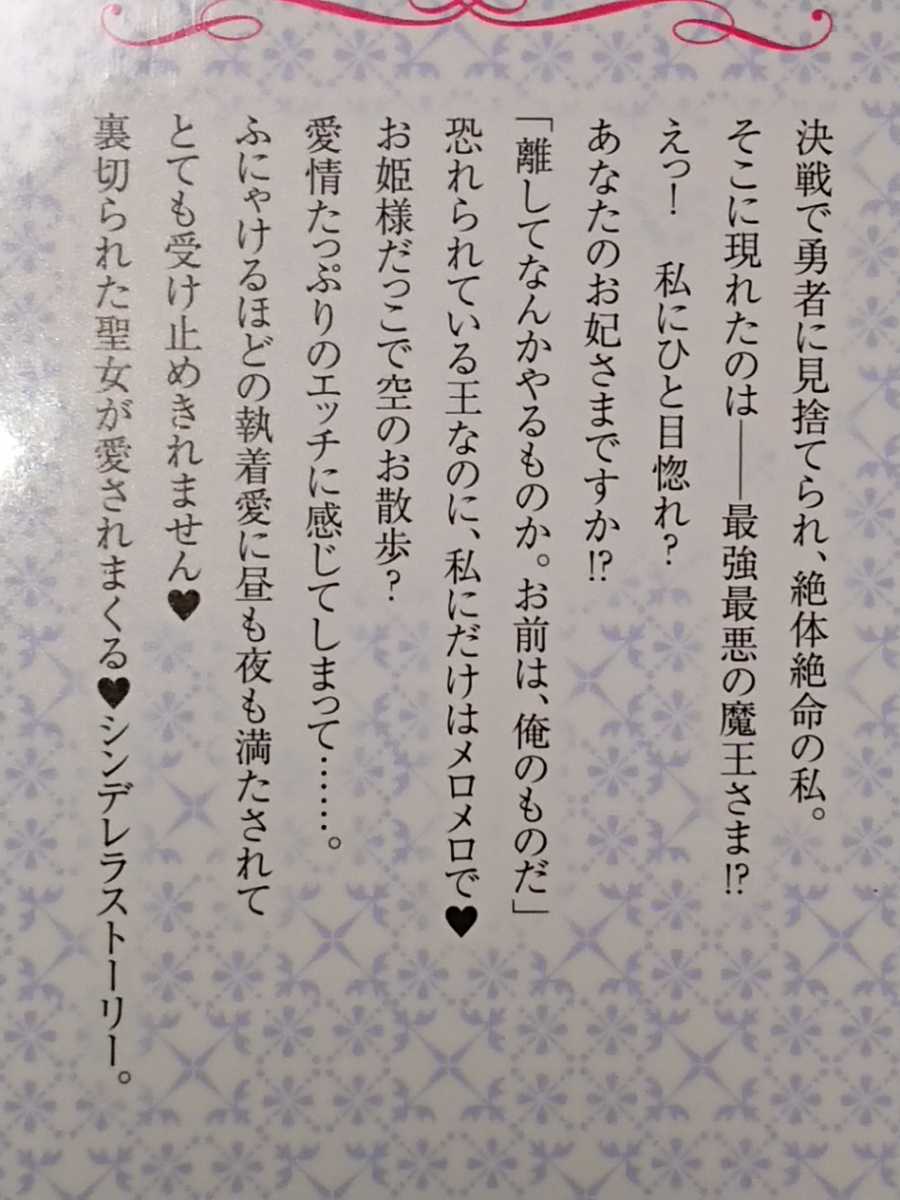 決戦で勇者に見捨てられ、絶体絶命の私。
そこに現れたのは――最強最悪の魔王さま!?
えっ！　私にひと目惚れ？
あなたのお妃さまですか!?
「離してなんかやるものか。お前は、俺のものだ」
恐れられている王なのに、私にだけはメロメロで♥
お姫様だっこで空のお散歩？
愛情たっぷりのエッチに感じてしまって……。
ふにゃけるほどの執着愛に昼も夜も満たされて
とても受け止めきれません♥
裏切られた聖女が愛されまくる♥シンデレラストーリー。